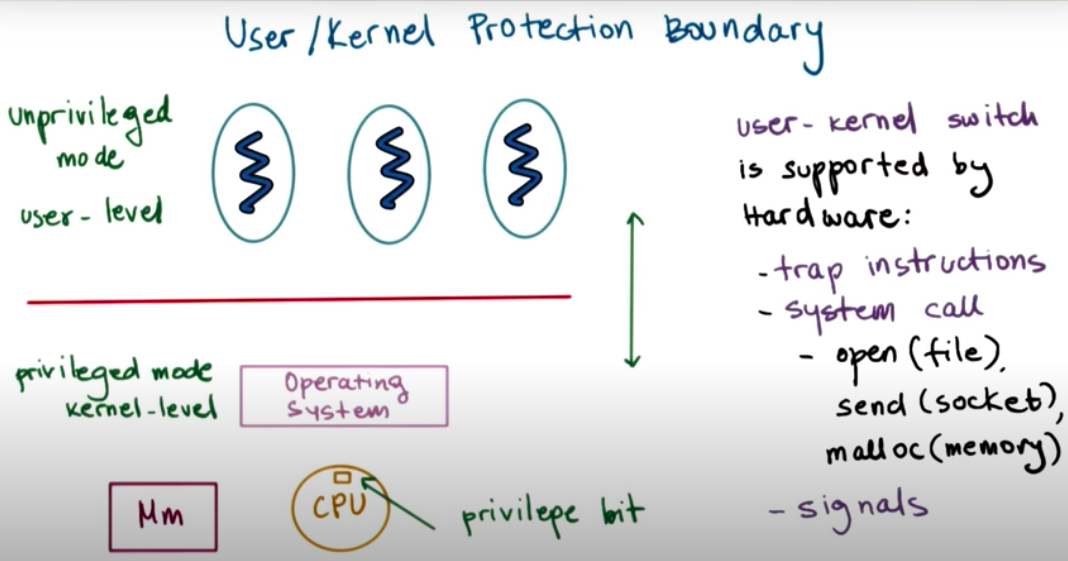 User/Kernel Protection Boundary
unprivileged
mode
user-level
privileged mode
kernel-level
Operating
System
Mm
CPU
privilepe bit
user-kernel switch
is supported by
Hardware:
- trap instructions
- system call
- open (file),
send (socket),
malloc (memory)
- signals